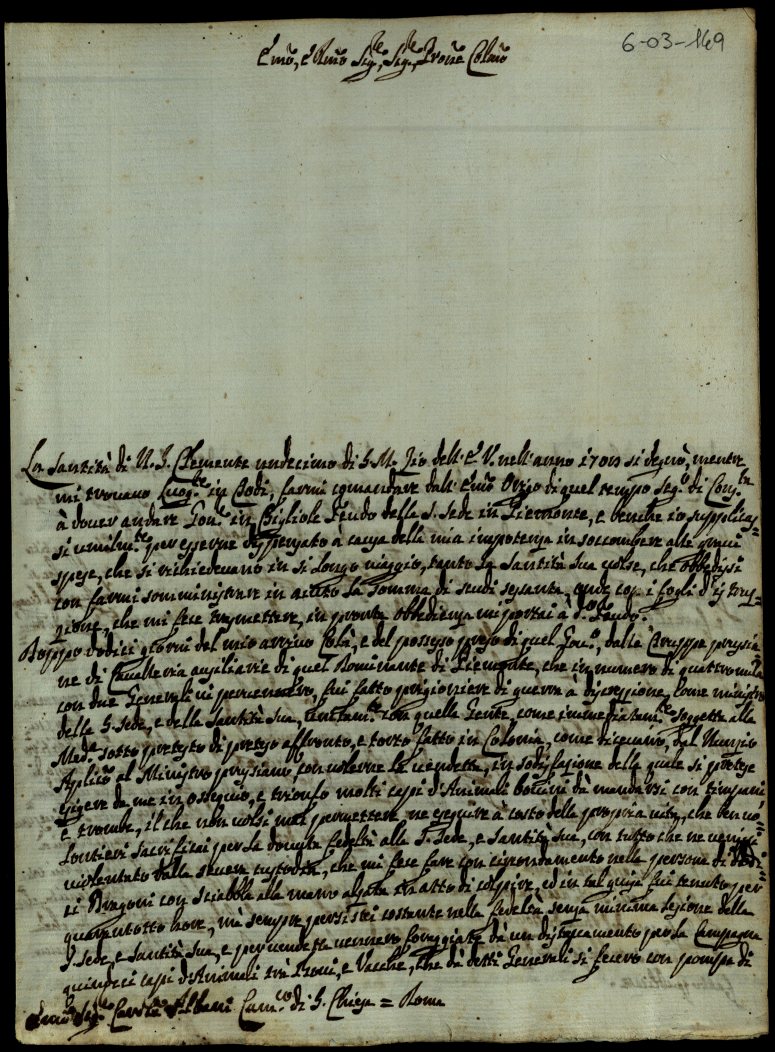 6-03-149
Emõ, e Rmõ Sig.re, Sig.re, Prone Colmõ
La Santità di N. S. Clemente undecimo di S. M. Zio dell' E. V. nell' anno 1708 si degnò, mentre
mi trovavo Luog.te in Todi, farmi comandare dall' Emõ Origo di quel tempo Seg.o di Cons.ta
à dover andare Gov.re in Cigliole Feudo della S. Sede in Piemonte, e benche io supplicas=
si umilm.te per esserne dispensato à causa della mia impotenza in soccombere alle gravi
spese, che si richiedevano in si longo viaggio, tanto la Santità Sua volse, che obbedissi
con farmi somministrare in aiuto la somma di scudi sessanta, onde con i fogli d' Istru=
zione, che mi fece trasmettere, in pronta obbedienza mi portai à d.o Feudo.
Doppo dodici giorni del mio arrivo Colà, e del possesso preso di quel Gov.o, dalle Truppe prussia
ne di Cavalleria ausiliarie di quel Dominante di Piemonte, che in numero di quattromila
con due Generali vi pervennero, fui fatto prigioniere di guerra à discrezione, come ministro
della S. Sede, e della Santità Sua, con quella Gente, come immediatam.te soggetta alla
Med.a sotto pretesto di preteso affronto, e torto fatto in Colonia, come dicevano, dal Nunzio
Aplico al Ministro prussiano, con volerne la vendetta, in sodisfazione della quale si pretese
esigere da me in ossequio, e trionfo molti capi d'Animali bovini dà mandarsi con timpani
e trombe, il che non volsi mai permettere, ne eseguire à costo della propria vita, che ben vo=
lontieri sacrificai per la dovuta fedeltà alla S. Sede, e Santità Sua, con tutto che ne venissi
violentato dalla severa custodia, che mi fece fare con circondamento nella persona di
ci Dragoni con Sciabbla alla mano alzata in atto di colpire, ed in tal guisa fui tenuto per
quarantotto hore, mà sempre persistei costante nella fedeltà senza minima lesione della
S. Sede, e Santità Sua, e per vendetta vennero foraggiate dà un distaccamento per la Campagna
quindici capi d'Animali trà Bovi, e Vacche, che dà detti Generali si fecero con pompa di
Emõ Sig.r Card.le Albani Cam.go di S. Chiesa = Roma